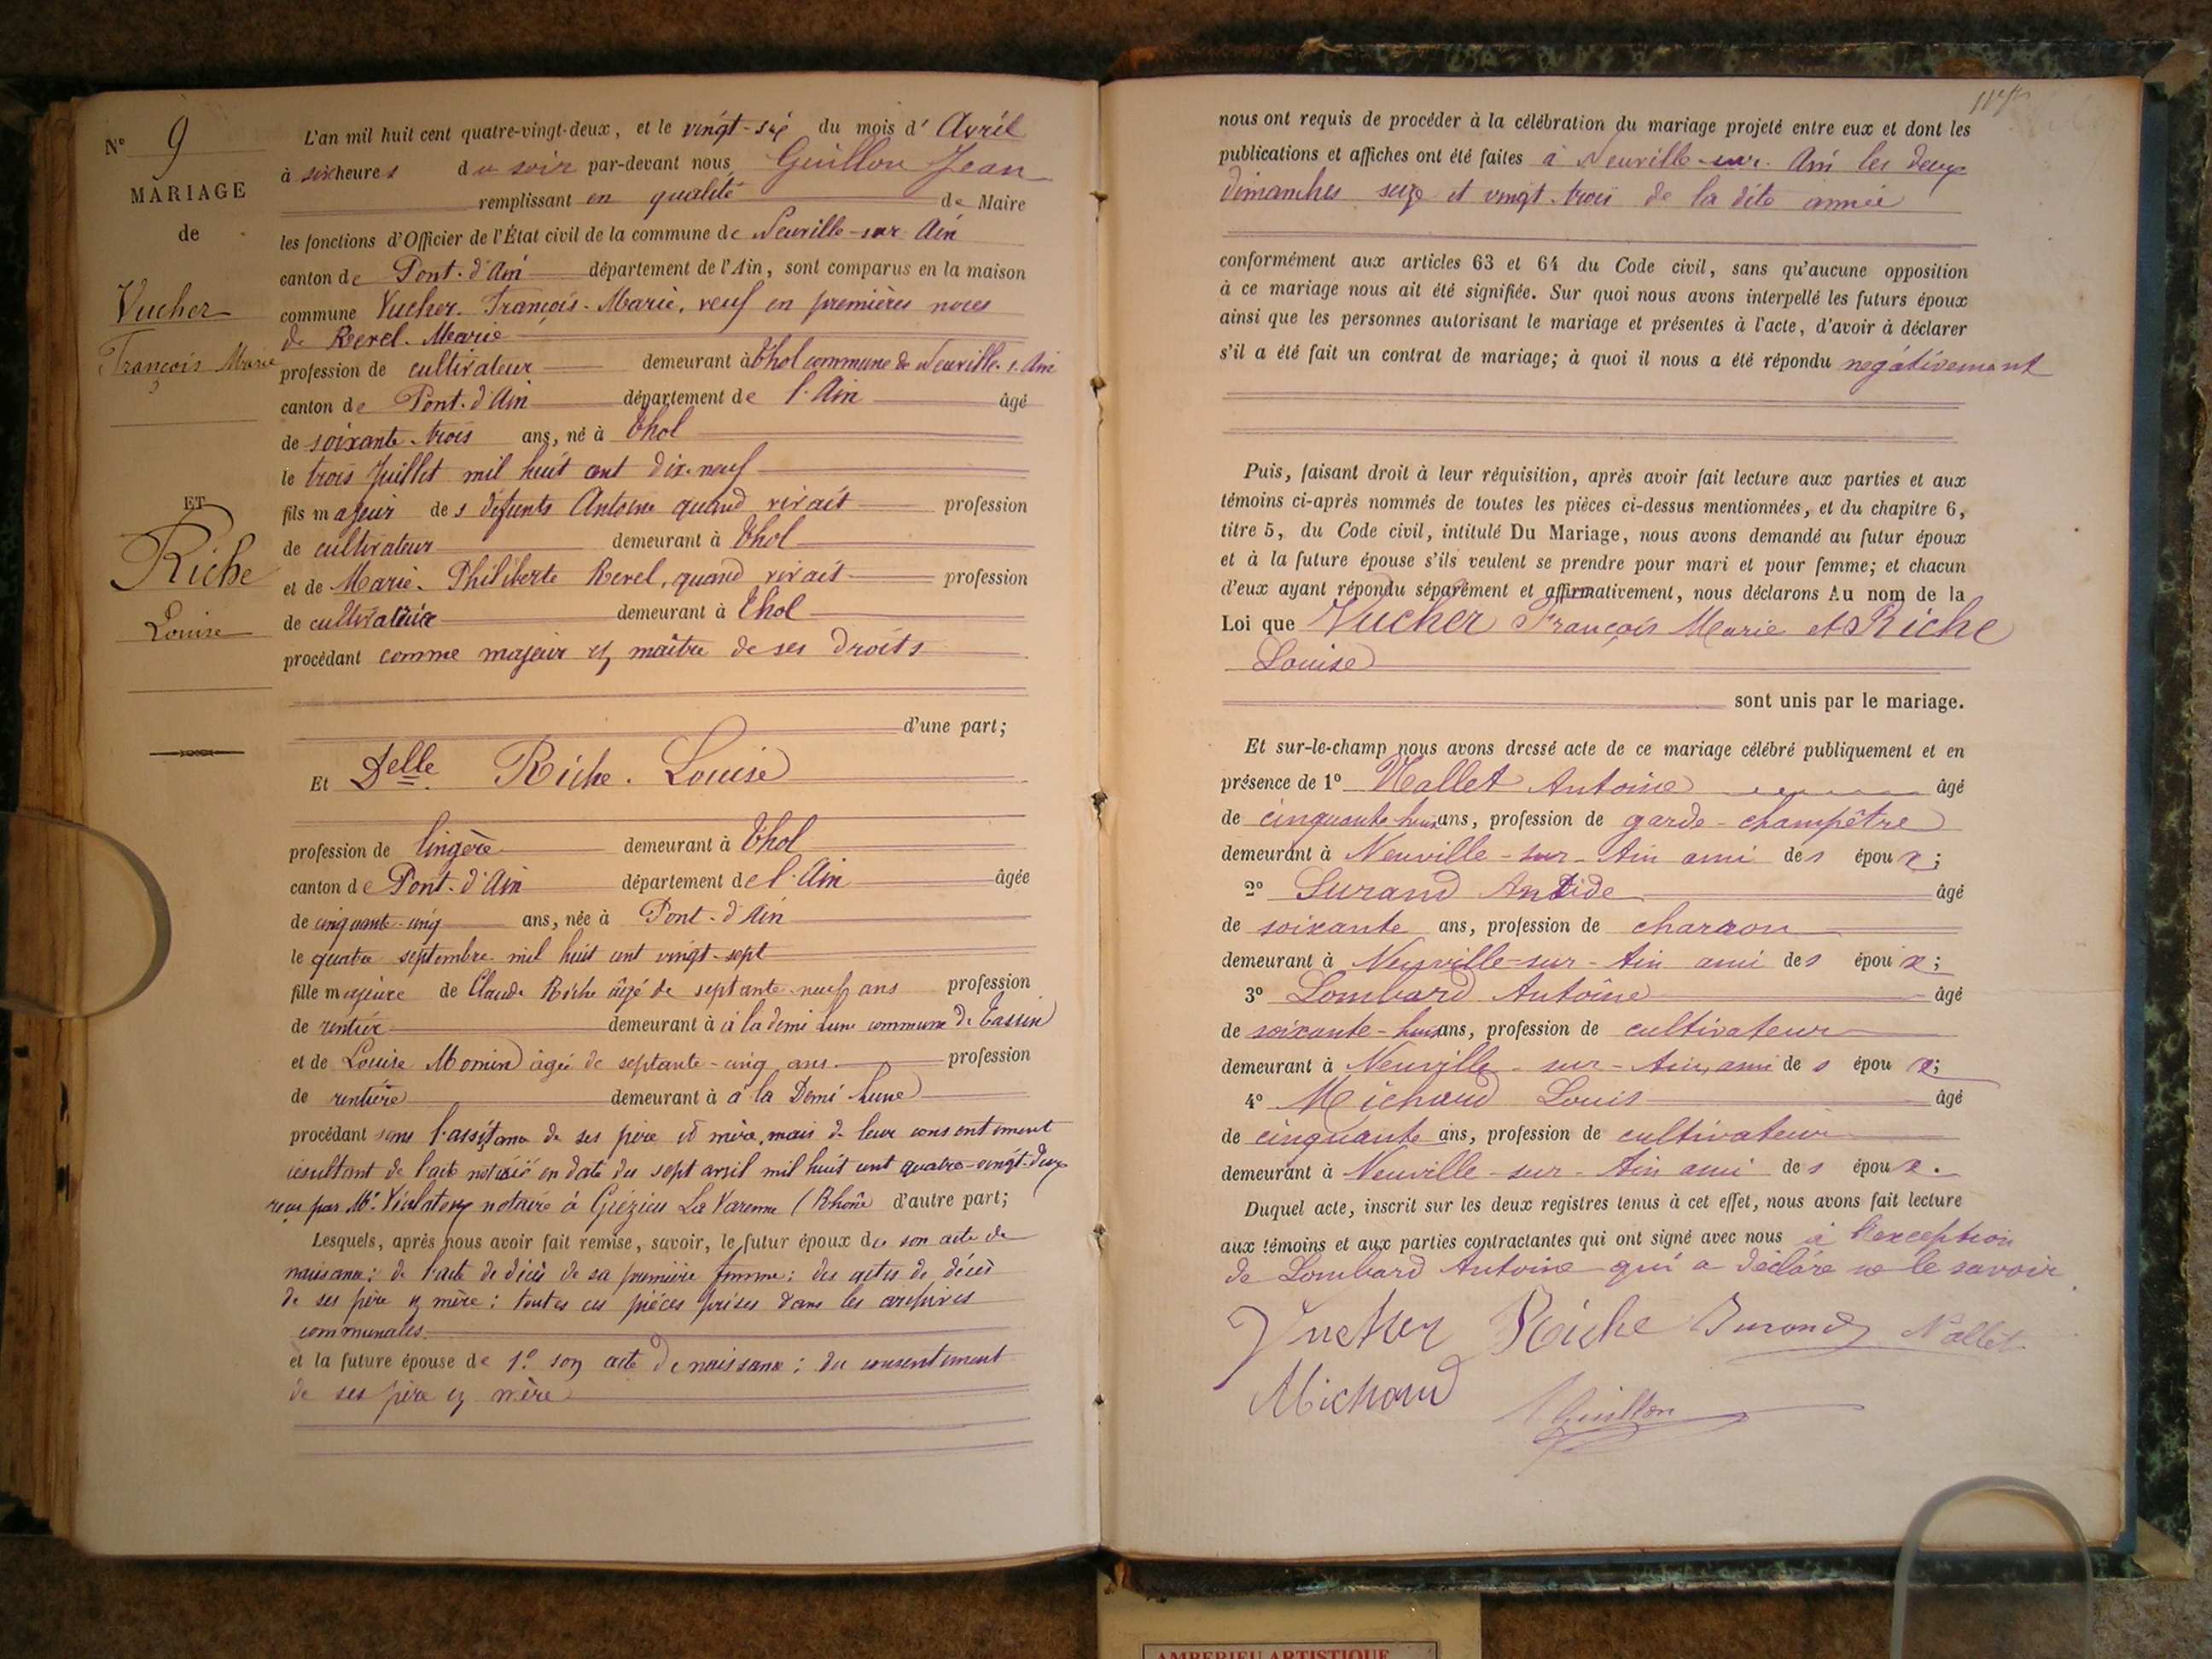 N° 9
MARIAGE
de
Vucher
François Marie
ET
Riche
Louise
L'an mil huit cent quatre-vingt-deux, et le vingt-six du mois d' Avril
à six heures du soir par-devant nous Guillon Jean
remplissant en qualité de Maire
les fonctions d'Officier de l'État civil de la commune de Neuville-sur Ain
canton de Pont-d'Ain département de l'Ain, sont comparus en la maison
commune Vucher François-Marie, veuf en premières noces
de Revel Marie
profession de cultivateur demeurant à Thol commune de Neuville-s.-Ain
canton de Pont-d'Ain département de l'Ain âgé
de soixante-trois ans, né à Thol
le trois Juillet mil huit cent dix-neuf
fils majeur des défunts Antoine quand vivait profession
de cultivateur demeurant à Thol
et de Marie-Philiberte Revel, quand vivait profession
de cultivatrice demeurant à Thol
procédant comme majeur et maître de ses droits
d'une part;
Et Delle Riche Louise
profession de lingère demeurant à Thol
canton de Pont-d'Ain département de l'Ain âgée
de cinquante-cinq ans, née à Pont-d'Ain
le quatre septembre mil huit cent vingt-sept
fille majeure de Claude Riche âgé de septante-neuf ans profession
de rentier demeurant à à la demi Lune commune de Tassin
et de Louise Monin âgée de septante-cinq ans profession
de rentière demeurant à à la Demi Lune
procédant sans l'assistance de ses père et mère, mais de leur consentement
résultant de l'acte notarié en date du sept avril mil huit cent quatre-vingt-deux
reçu par Me notaire à Grézieu La Varenne (Rhône d'autre part;
Lesquels, après nous avoir fait remise, savoir, le futur époux de son acte de
naissance: de l'acte de décès de sa première femme: des actes de décès
de ses père et mère: toutes ces pièces prises dans les archives
communales
et la future épouse de 1° son acte de naissance: du consentement
de ses père et mère
nous ont requis de procéder à la célébration du mariage projeté entre eux et dont les
publications et affiches ont été faites à Neuville-sur-Ain les deux
dimanches seize et vingt-trois de la dite année
conformément aux articles 63 et 64 du Code civil, sans qu'aucune opposition
à ce mariage nous ait été signifiée. Sur quoi nous avons interpellé les futurs époux
ainsi que les personnes autorisant le mariage et présentes à l'acte, d'avoir à déclarer
s'il a été fait un contrat de mariage; à quoi il nous a été répondu negativement
Puis, faisant droit à leur réquisition, après avoir fait lecture aux parties et aux
témoins ci-après nommés de toutes les pièces ci-dessus mentionnées, et du chapitre 6,
titre 5, du Code civil, intitulé Du Mariage, nous avons demandé au futur époux
et à la future épouse s'ils veulent se prendre pour mari et pour femme; et chacun
d'eux ayant répondu séparément et affirmativement, nous déclarons Au nom de la
Loi que Vucher François Marie et Riche
Louise
sont unis par le mariage.
Et sur-le-champ nous avons dressé acte de ce mariage célébré publiquement et en
présence de 1° Nallet Antoine âgé
de cinquante huit ans, profession de garde-champêtre
demeurant à Neuville-sur-Ain ami des époux;
2° Durand Antide âgé
de soixante ans, profession de charron
demeurant à Neuville-sur-Ain ami des époux;
3° Lombard Antoine âgé
de soixante-huit ans, profession de cultivateur
demeurant à Neuville-sur-Ain, ami des époux;
4° Michaud Louis âgé
de cinquante ans, profession de cultivateur
demeurant à Neuville-sur-Ain ami des époux.
Duquel acte, inscrit sur les deux registres tenus à cet effet, nous avons fait lecture
aux témoins et aux parties contractantes qui ont signé avec nous à l'exception
de Lombard Antoine qui a déclaré ne le savoir
Vucher Riche Durand Nallet
Michaud Guillon
AMBERIEU ARTISTIQUE